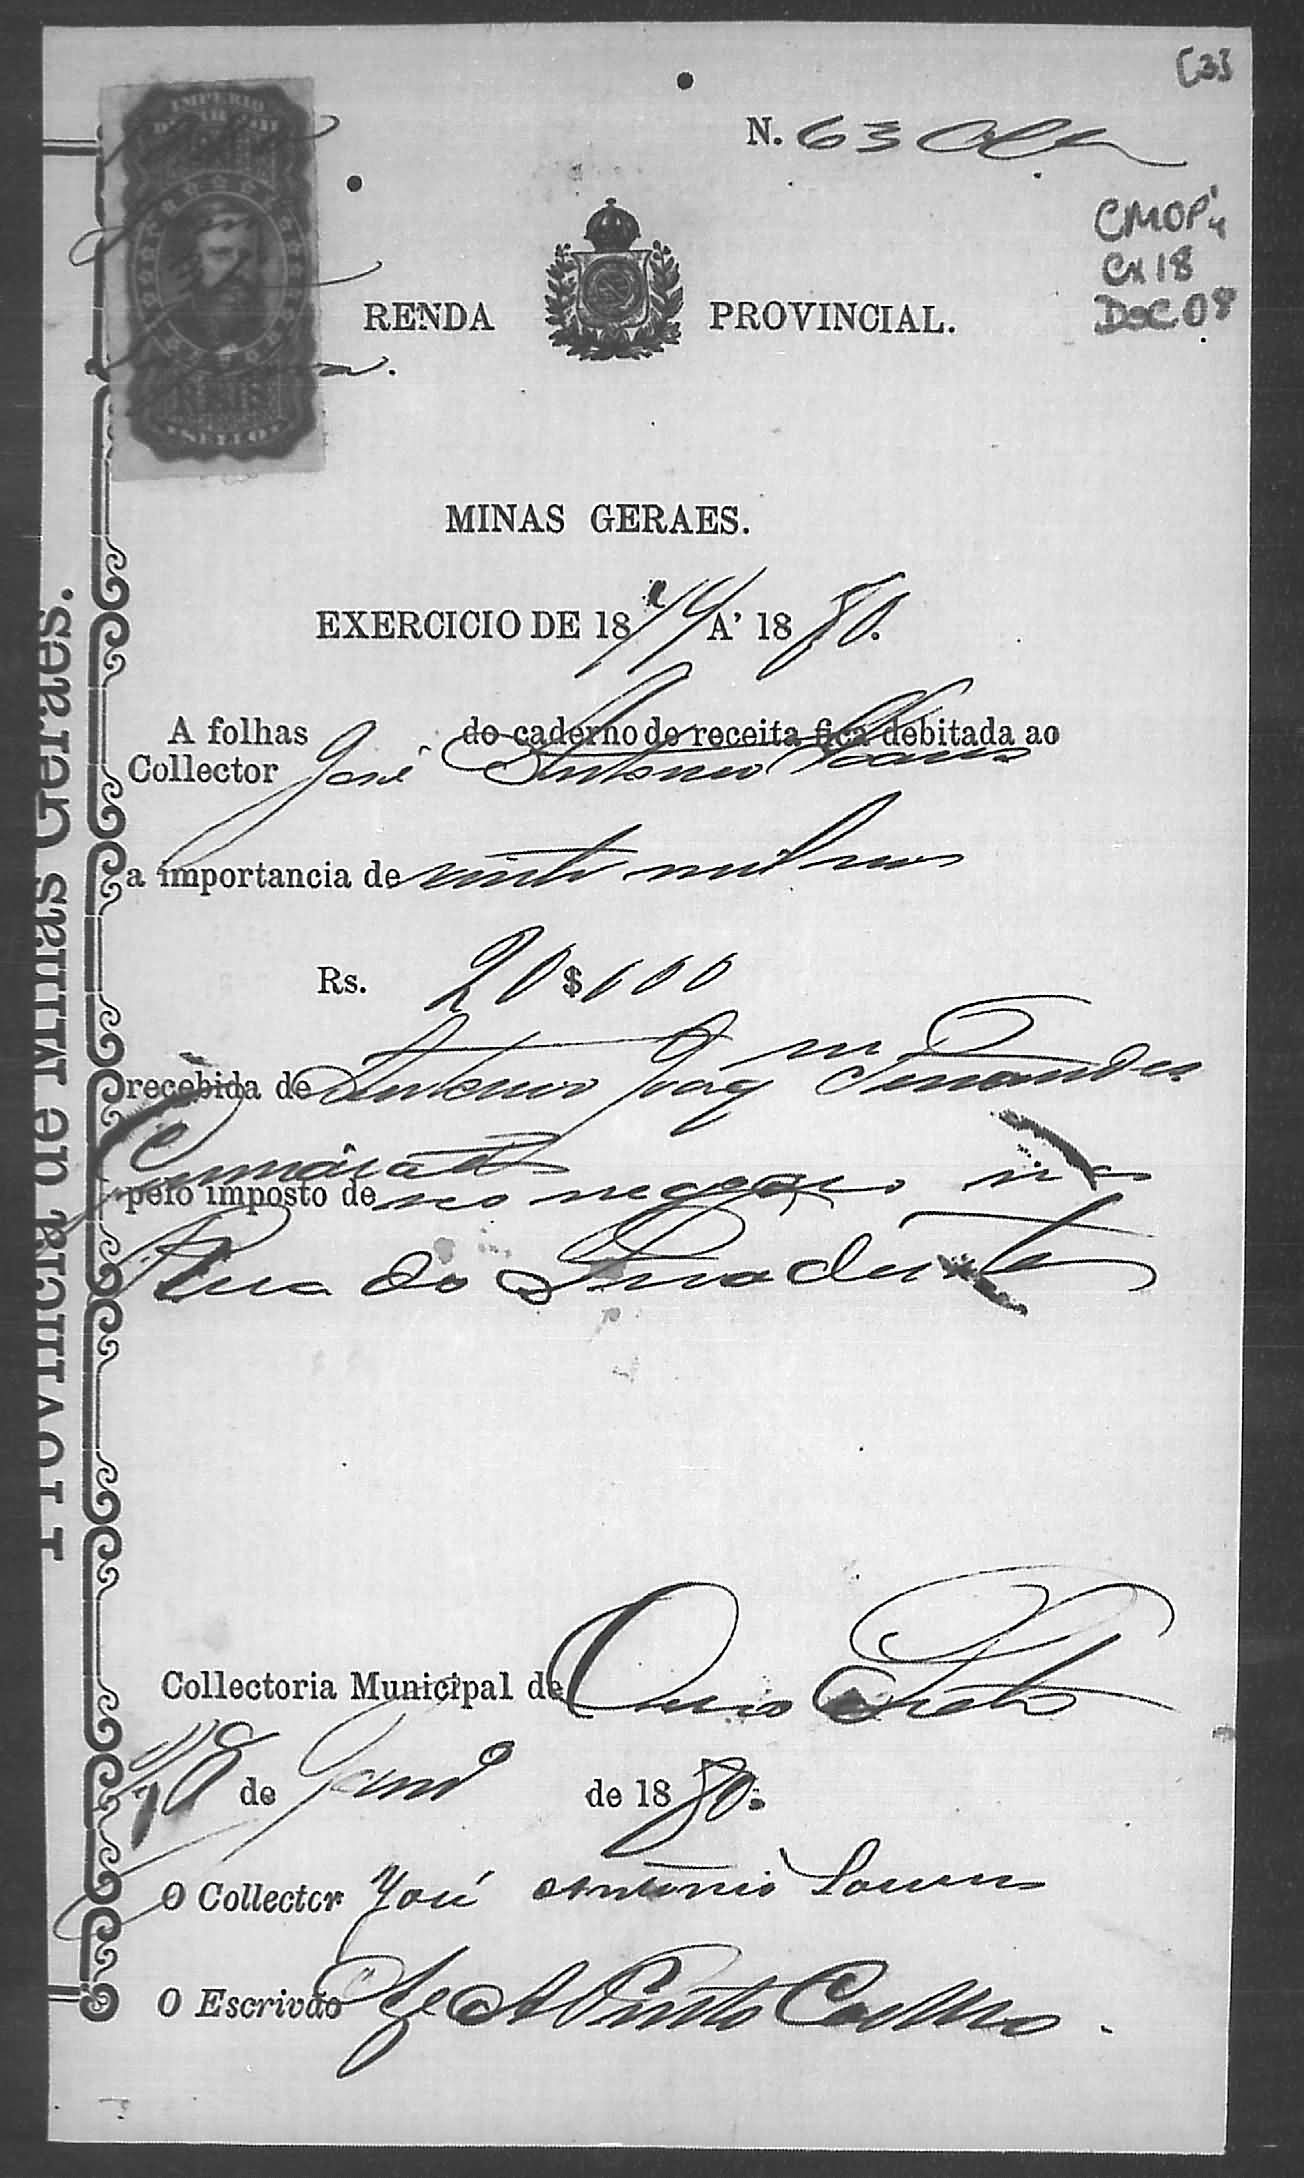 [3]
IMPERIO
DO BRAZIL
N. 63
CMOP
Cx 18
Doc. 08
RENDA PROVINCIAL.
SELLO
MINAS GERAES.
EXERCICIO DE 1879 A' 1880.
A folhas do caderno de receita fica debitada ao
Collector José Antonio Soares
a importancia de vinte mil reis
Rs. 20$000
recebida de Antonio Joaqm Fernandes
Guimarães
pelo imposto de seo negocio na
Rua do Tiradentes
Collectoria Municipal de Ouro Preto
de de 1880.
O Collector José Antonio Soares
O Escrivão Pinto Coelho.
Provincia de Minas Geraes.